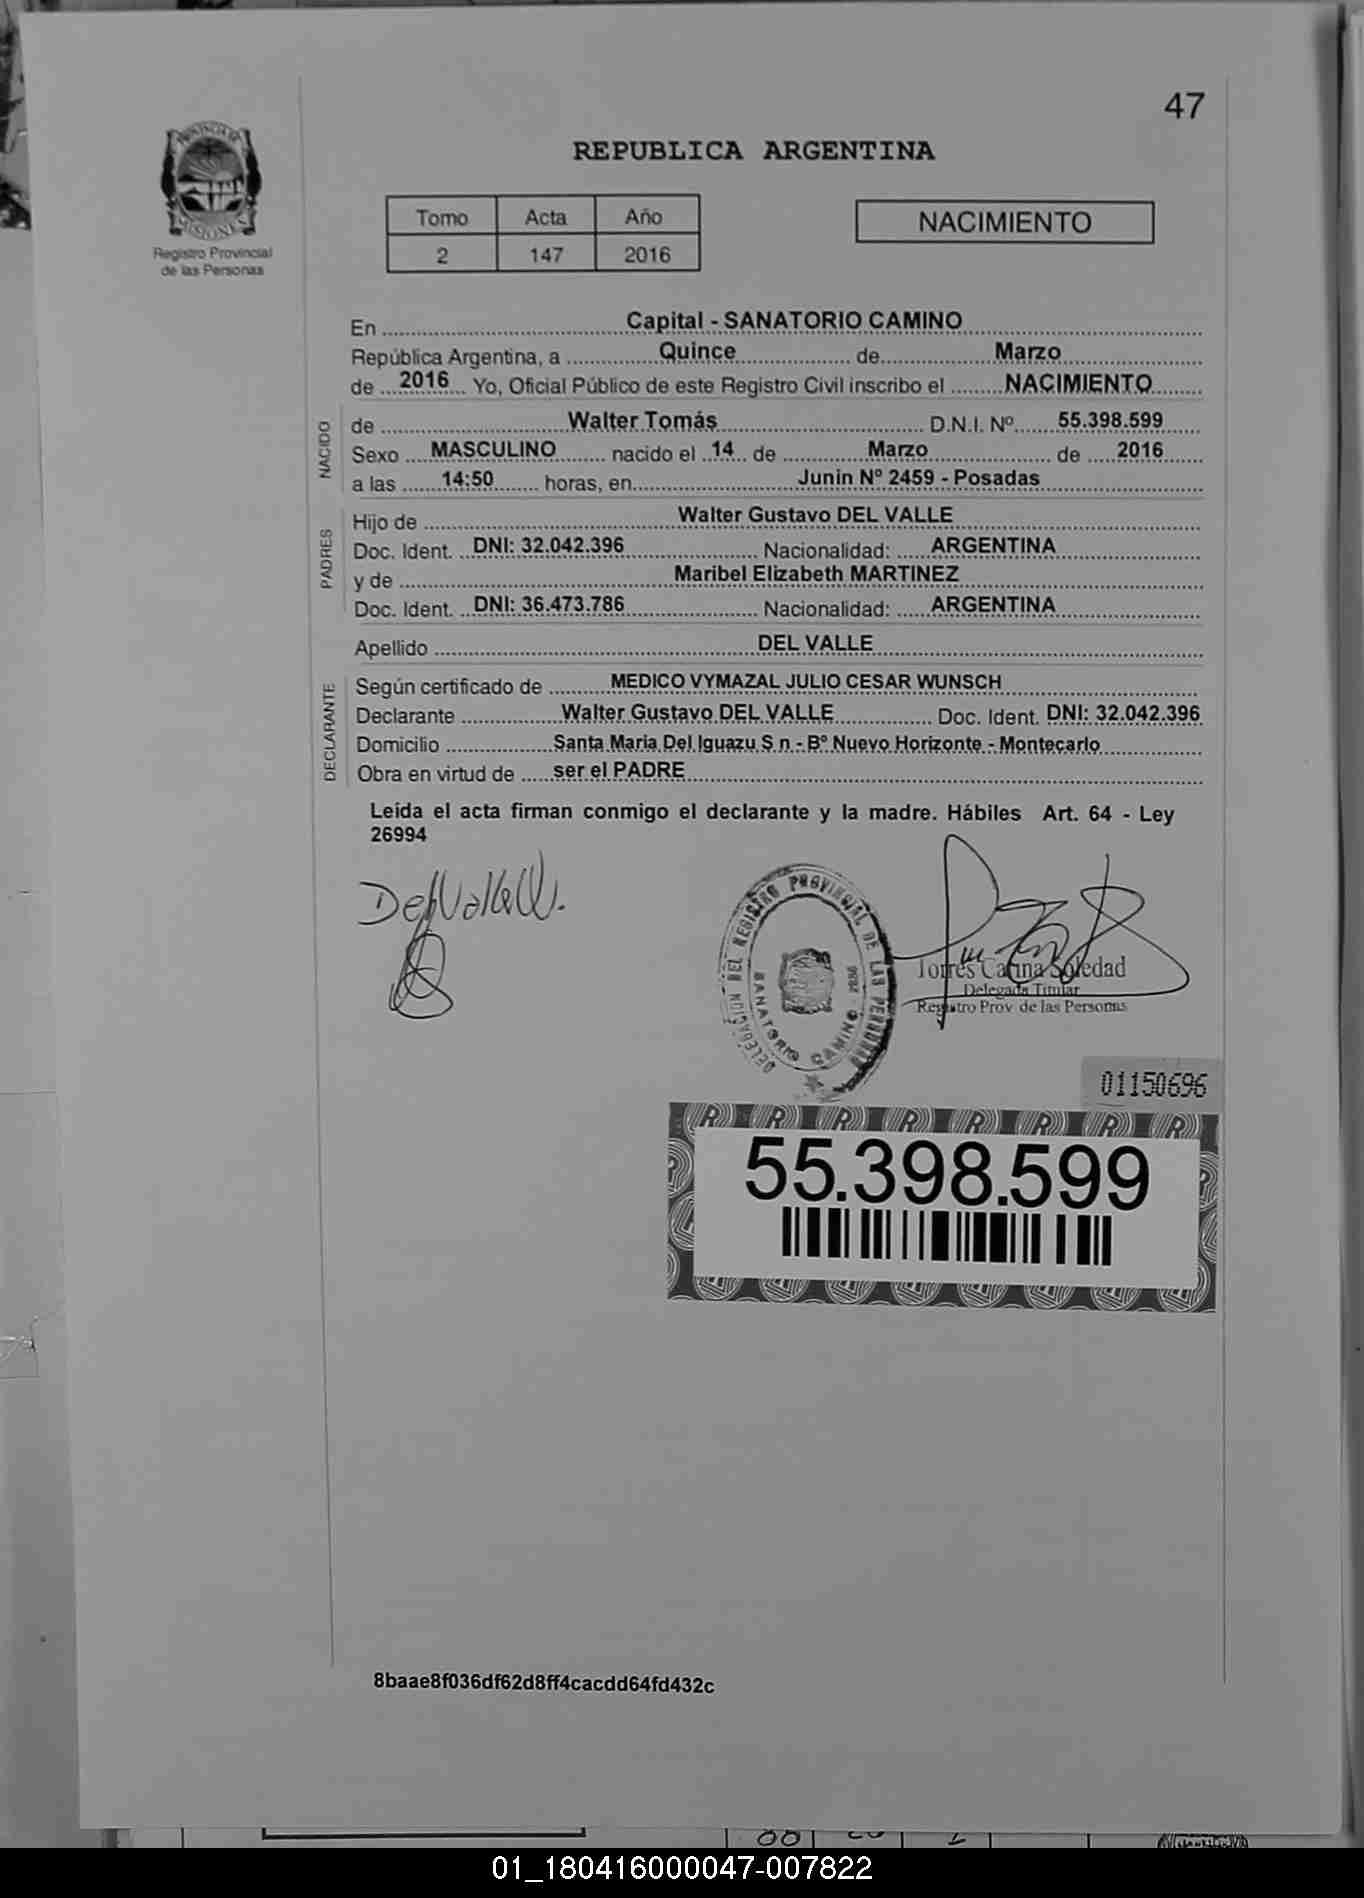 47
PROVINCIA DE
MISIONES
Registro Provincial
de las Personas
REPUBLICA ARGENTINA
Tomo Acta Año
2 147 2016
NACIMIENTO
En Capital - SANATORIO CAMINO
República Argentina, a Quince de Marzo
de 2016 Yo, Oficial Público de este Registro Civil inscribo el NACIMIENTO
NACIDO
de Walter Tomás D.N.I. Nº 55.398.599
Sexo MASCULINO nacido el 14 de Marzo de 2016
a las 14:50 horas, en Junin Nº 2459 - Posadas
PADRES
Hijo de Walter Gustavo DEL VALLE
Doc. Ident. DNI: 32.042.396 Nacionalidad: ARGENTINA
y de Maribel Elizabeth MARTINEZ
Doc. Ident. DNI: 36.473.786 Nacionalidad: ARGENTINA
Apellido DEL VALLE
DECLARANTE
Según certificado de MEDICO VYMAZAL JULIO CESAR WUNSCH
Declarante Walter Gustavo DEL VALLE Doc. Ident. DNI: 32.042.396
Domicilio Santa Maria Del Iguazu S n - Bº Nuevo Horizonte - Montecarlo
Obra en virtud de ser el PADRE
Leída el acta firman conmigo el declarante y la madre. Hábiles Art. 64 - Ley
26994
Del Valle W.
DELEGACION DEL REGISTRO PROVINCIAL DE LAS PERSONAS
SANATORIO CAMINO - 2886
Torres Carina Soledad
Delegada Titular
Registro Prov de las Personas
01150696
55.398.599
8baae8f036df62d8ff4cacdd64fd432c
01_180416000047-007822